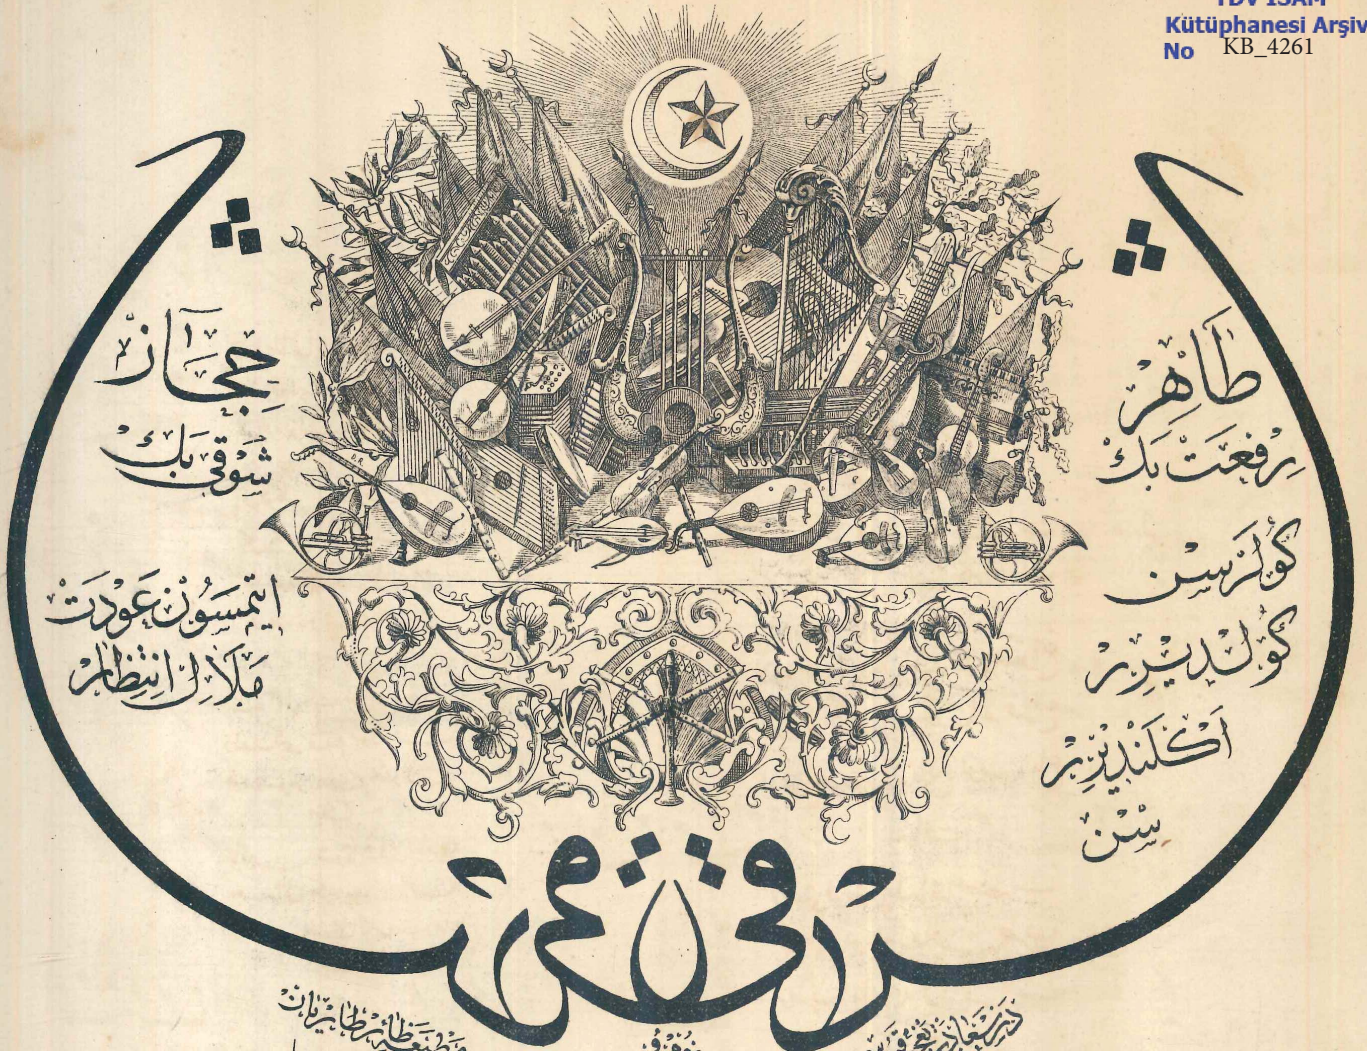 Kütüphanesi Arşiv
No KB_4261
طاهر
رفعت بك
كولرسن
كولديرر
اكلنديرر
سن
حجاز
شوقی بك
ایتمسون عودت
ملال انتظار
شرقی